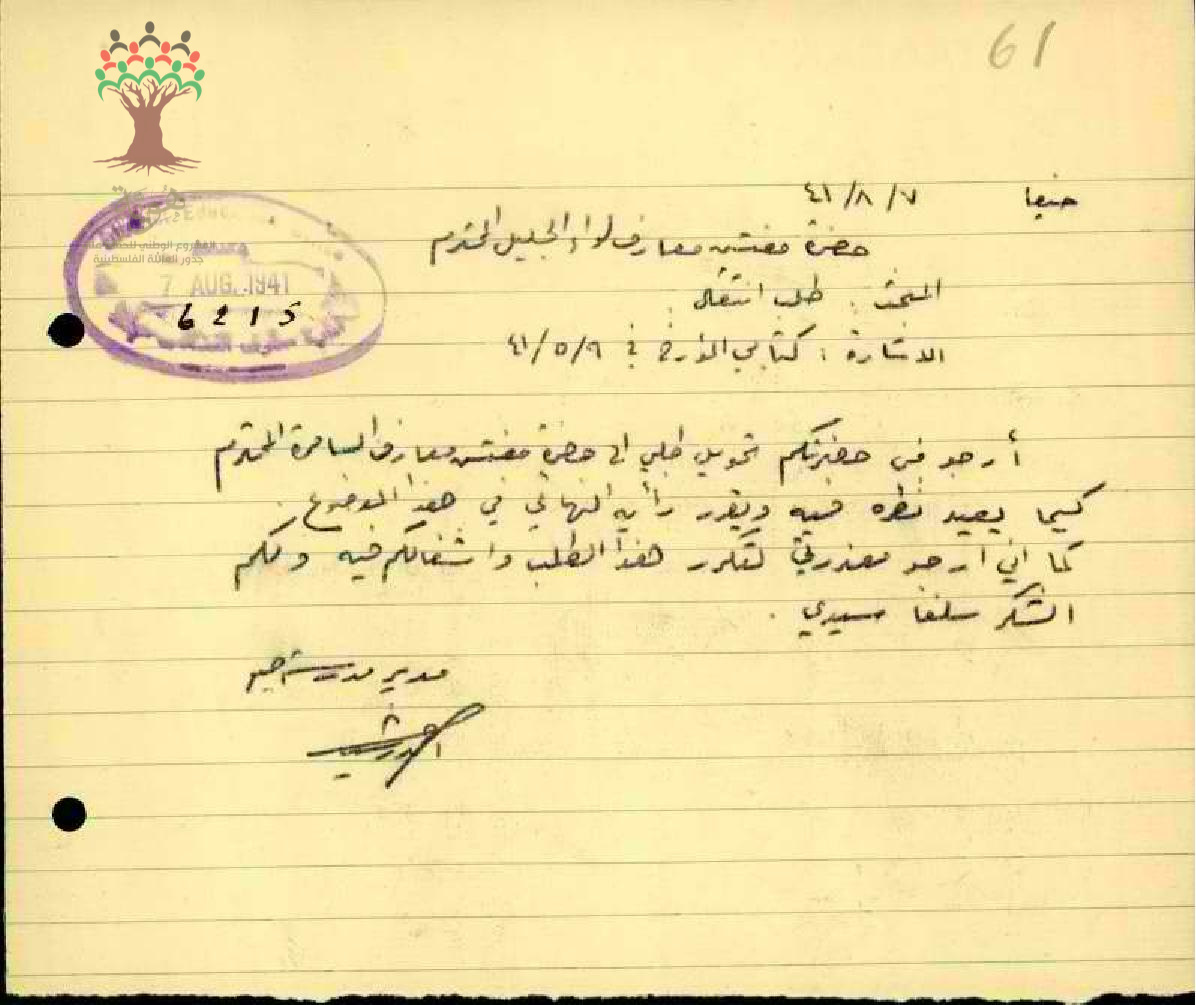 61
حيفا ٤١/٨/٧
حضرة مفتش معارف لواء الجليل المحترم
المبحث : طلب انتقال
الاشارة : كتابي المؤرخ في ٤١/٥/٩
7 AUG. 1941
6215
المشروع الوطني للحفاظ على
جذور العائلة الفلسطينية
أرجو من حضرتكم تحويل طلبي الى حضرة مفتش معارف السامرة المحترم
كيما يعيد نظره فيه ويقرر رأيه النهائي في هذا الموضوع .
كما اني ارجو معذرتي لتكرر هذا الطلب واشغالكم فيه ولكم
الشكر سلفا سيدي .
مدير مدرسة